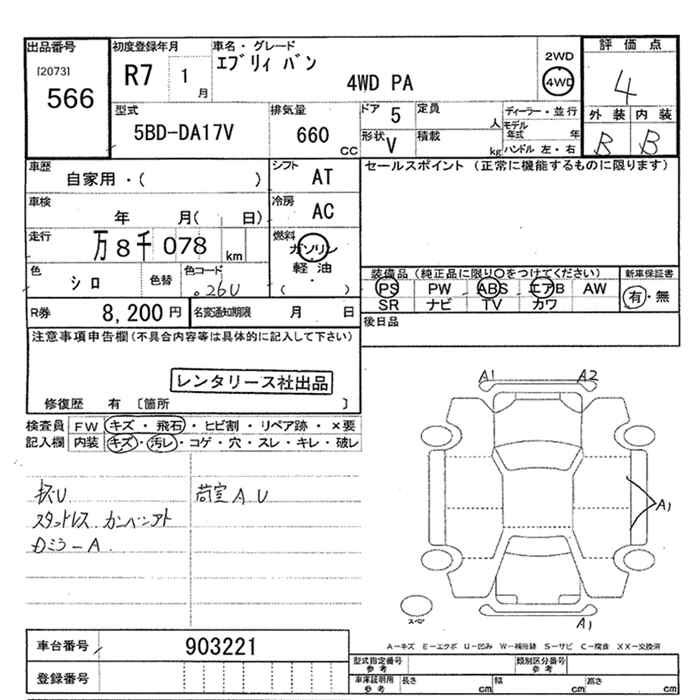 出品番号
[2073]
566
初度登録年月
R7 1 月
車名・グレード
エブリィ バン
4WD PA
2WD
4WD
評価点
4
外装 内装
B B
型式
5BD-DA17V
排気量
660 CC
ドア 5
形状 V
定員 人
積載 kg
ディーラー・並行
モデル年式 年
ハンドル 左・右
車歴
自家用・( )
シフト AT
車検
年 月( 日)
冷房 AC
走行
万 8千 078 km
燃料
ガソリン
軽油
( )
色
シロ
色替
色コード
26U
セールスポイント (正常に機能するものに限ります)
装備品 (純正品に限り○をつけてください)
PS PW ABS エアB AW
SR ナビ TV カワ
新車保証書
有・無
R券 8,200 円
名変通知期限 月 日
後日品
注意事項申告欄(不具合内容等は具体的に記入して下さい)
レンタリース社出品
修復歴 有 〔箇所 〕
検査員記入欄
FW キズ・飛石・ヒビ割・リペア跡・×要
内装 キズ・汚レ・コゲ・穴・スレ・キレ・破レ
荷室A U
スタットレス
DミラーA
A1 A2
A1
A1
スペア
A-キズ E-エクボ U-凹み W-補修跡 S-サビ C-腐食 XX-交換済
車台番号 903221
登録番号
型式指定番号 参考
類別区分番号 参考
車庫証明用 参考
長さ cm 幅 cm 高さ cm